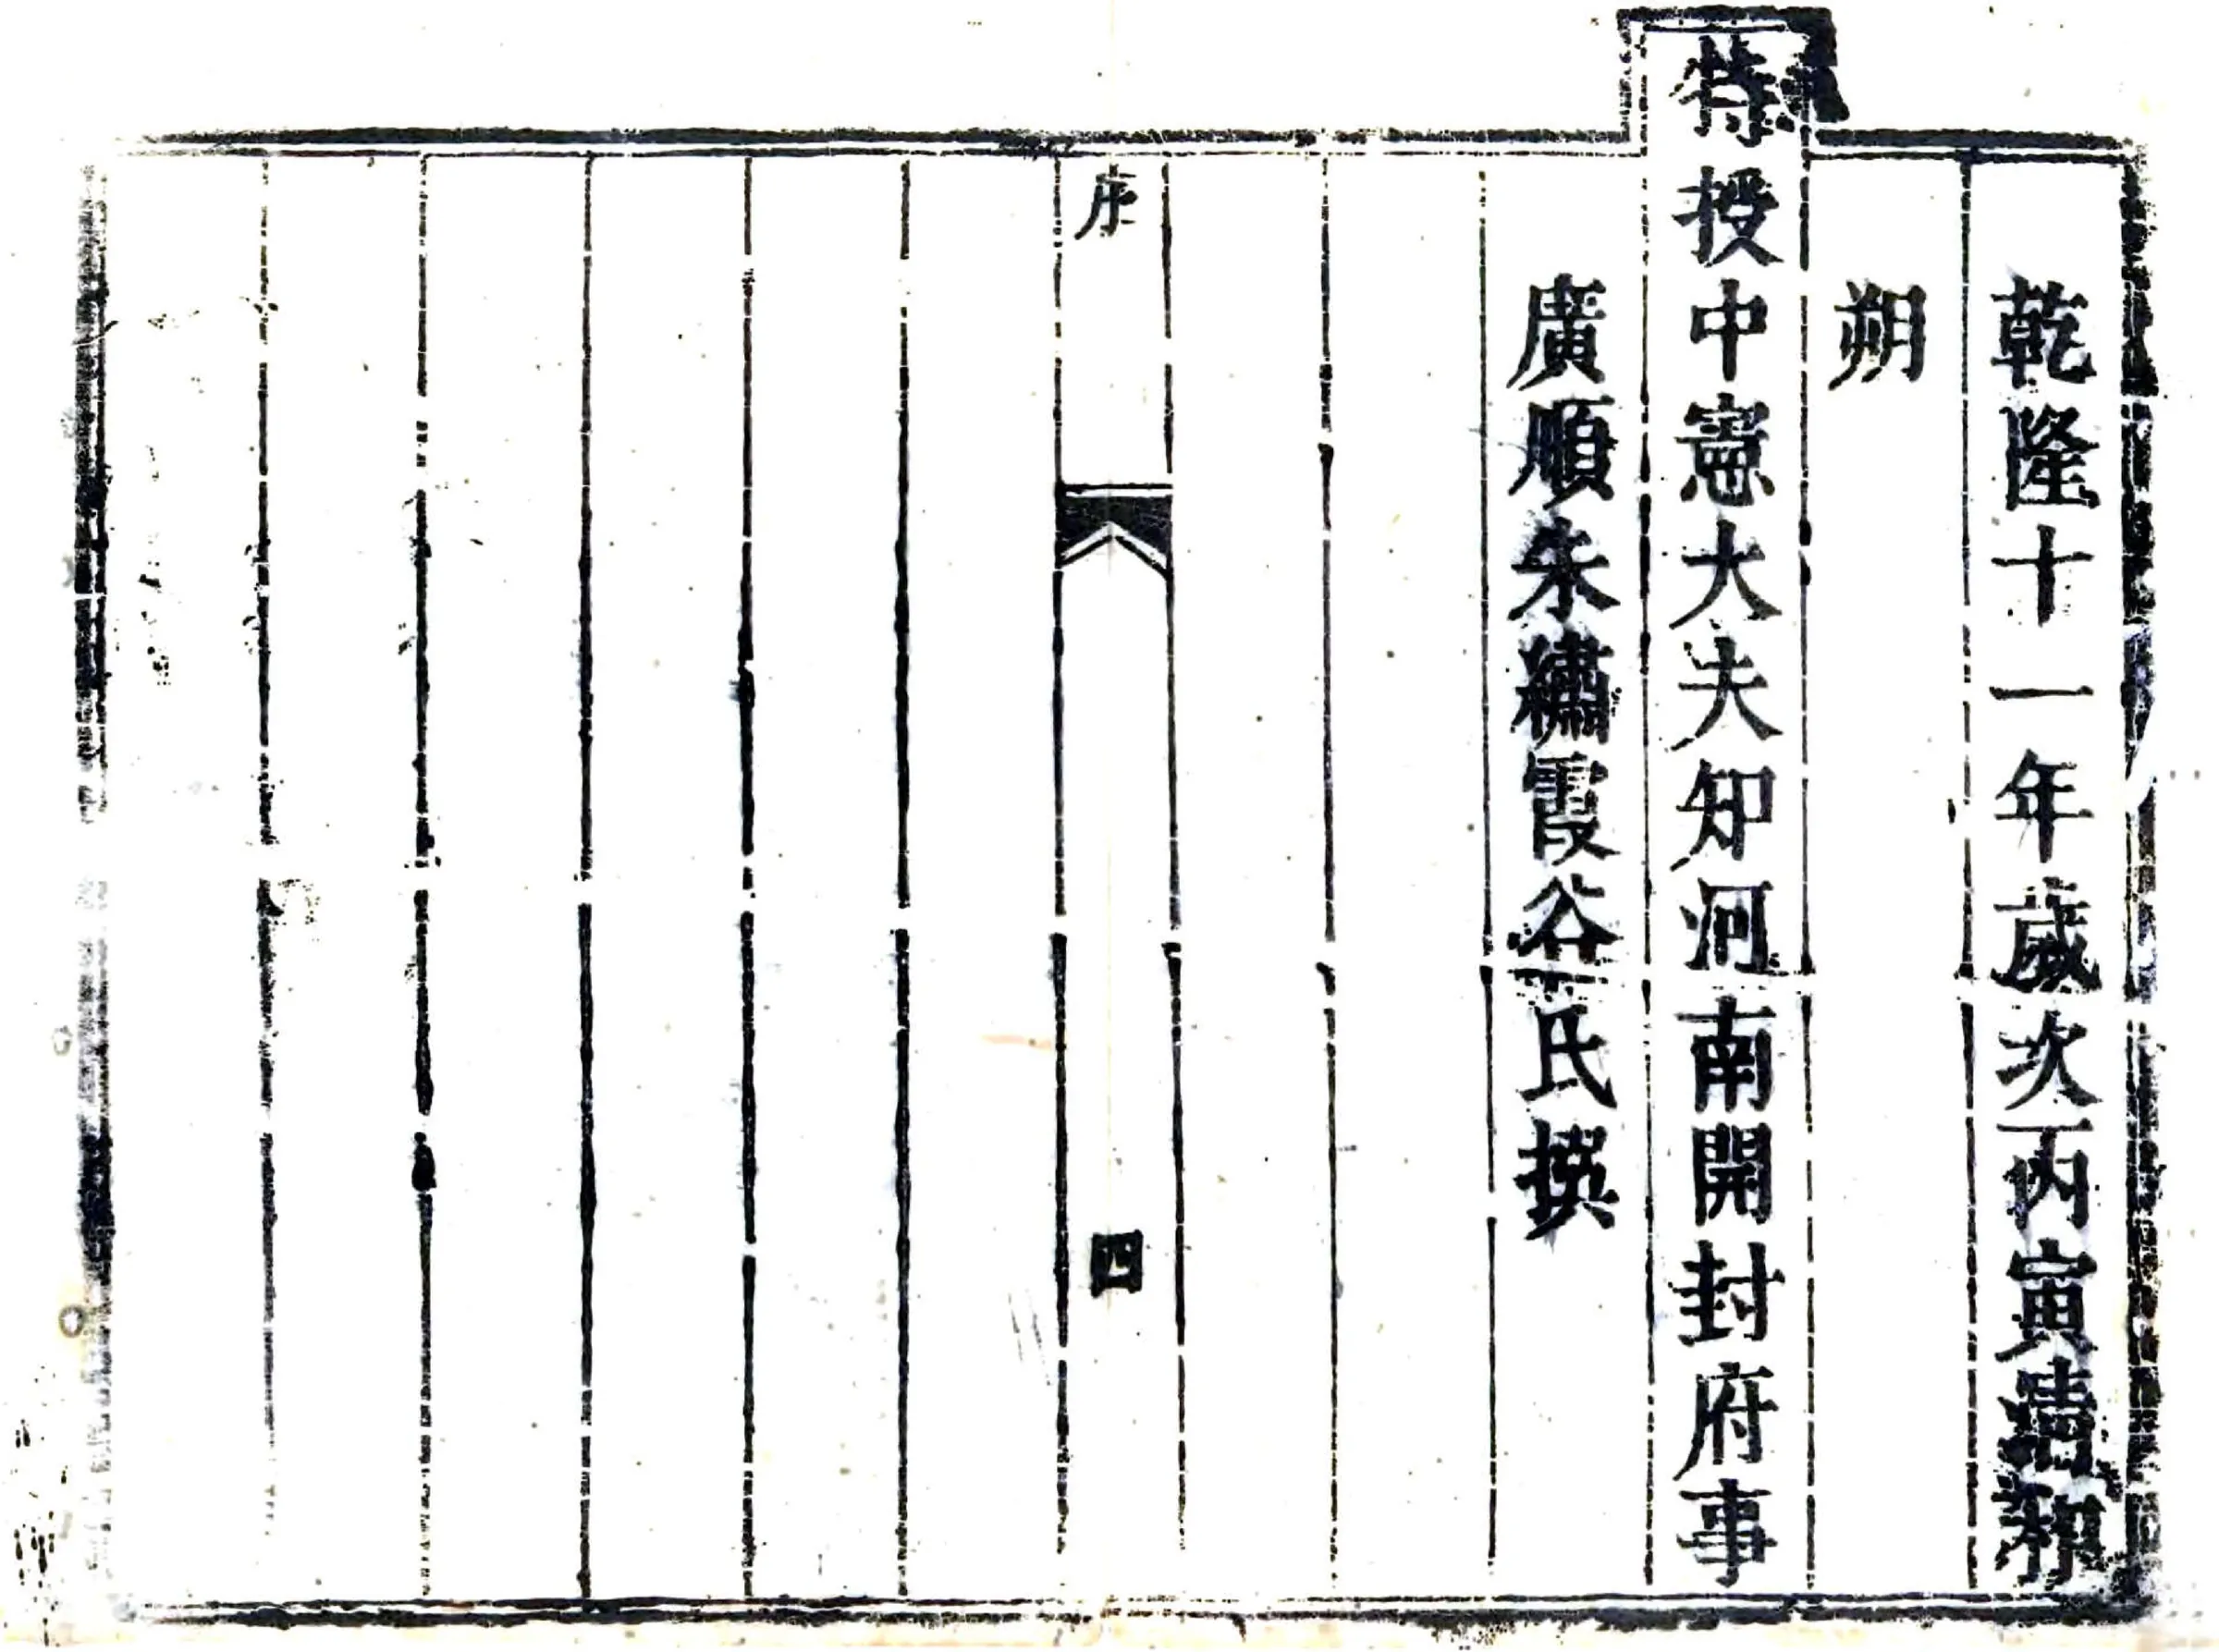 乾隆十一年歲次丙寅清和
朔
特授中憲大夫知河南開封府事
廣順朱繡霞谷氏撰
序
四